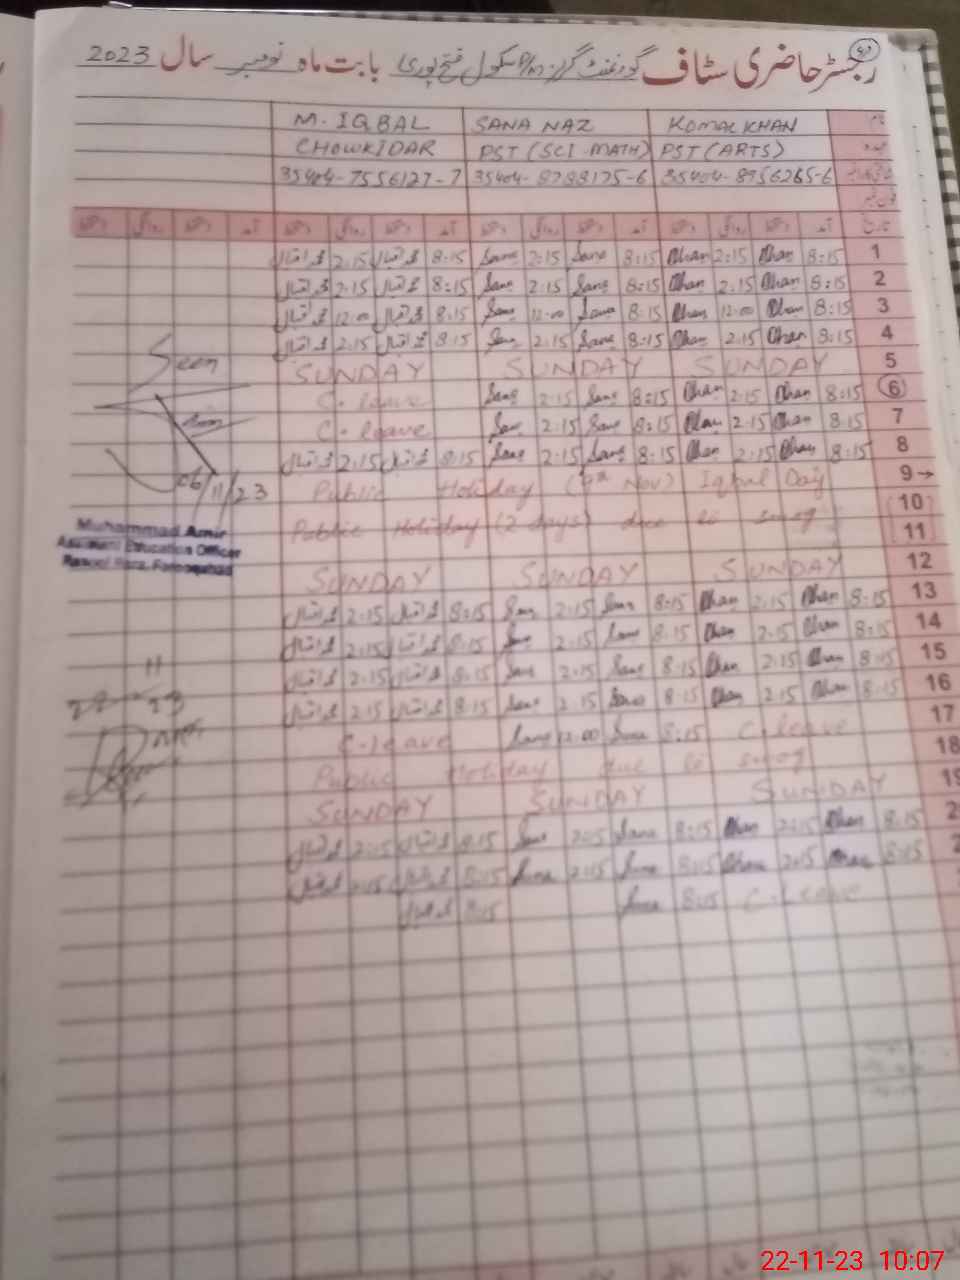 رجسٹر حاضری سٹاف گورنمنٹ گرلز سکول فتح پوری بابت ماہ نومبر سال 2023
M. IQBAL SANA NAZ KOMAL KHAN
CHOWKIDAR PST (SCI-MATH) PST (ARTS)
35404-7556127-7 35404-8788175-6 35404-8956265-6
آمد روانگی آمد روانگی آمد روانگی آمد تاریخ
محمد اقبال 2:15 محمد اقبال 8:15 Sana 2:15 Sana 8:15 Khan 2:15 Khan 8:15 1
محمد اقبال 2:15 محمد اقبال 8:15 Sana 2:15 Sana 8:15 Khan 2:15 Khan 8:15 2
محمد اقبال 12:00 محمد اقبال 8:15 Sana 12:00 Sana 8:15 Khan 12:00 Khan 8:15 3
محمد اقبال 2:15 محمد اقبال 8:15 Sana 2:15 Sana 8:15 Khan 2:15 Khan 8:15 4
Seen
SUNDAY SUNDAY SUNDAY 5
C. leave Sana 2:15 Sana 8:15 Khan 2:15 Khan 8:15 6
C. leave Sana 2:15 Sana 8:15 Khan 2:15 Khan 8:15 7
محمد اقبال 2:15 محمد اقبال 8:15 Sana 2:15 Sana 8:15 Khan 2:15 Khan 8:15 8
06/11/23
Public Holiday (9th Nov) Iqbal Day 9→
10
Public Holiday (2 days) due to smog 11
Muhammad Amir
Assistant Education Officer
SUNDAY SUNDAY SUNDAY 12
محمد اقبال 2:15 محمد اقبال 8:15 Sana 2:15 Sana 8:15 Khan 2:15 Khan 8:15 13
محمد اقبال 2:15 محمد اقبال 8:15 Sana 2:15 Sana 8:15 Khan 2:15 Khan 8:15 14
محمد اقبال 2:15 محمد اقبال 8:15 Sana 2:15 Sana 8:15 Khan 2:15 Khan 8:15 15
محمد اقبال 2:15 محمد اقبال 8:15 Sana 2:15 Sana 8:15 Khan 2:15 Khan 8:15 16
C-leave Sana 12:00 Sana 8:15 C.leave 17
Public Holiday due to smog 18
SUNDAY SUNDAY SUNDAY 19
محمد اقبال 2:15 محمد اقبال 8:15 Sana 2:15 Sana 8:15 Khan 2:15 Khan 8:15
محمد اقبال 2:15 محمد اقبال 8:15 Sana 2:15 Sana 8:15 Khan 2:15 Khan 8:15
محمد اقبال 8:15 Sana 8:15 C.Leave
22-11-23 10:07